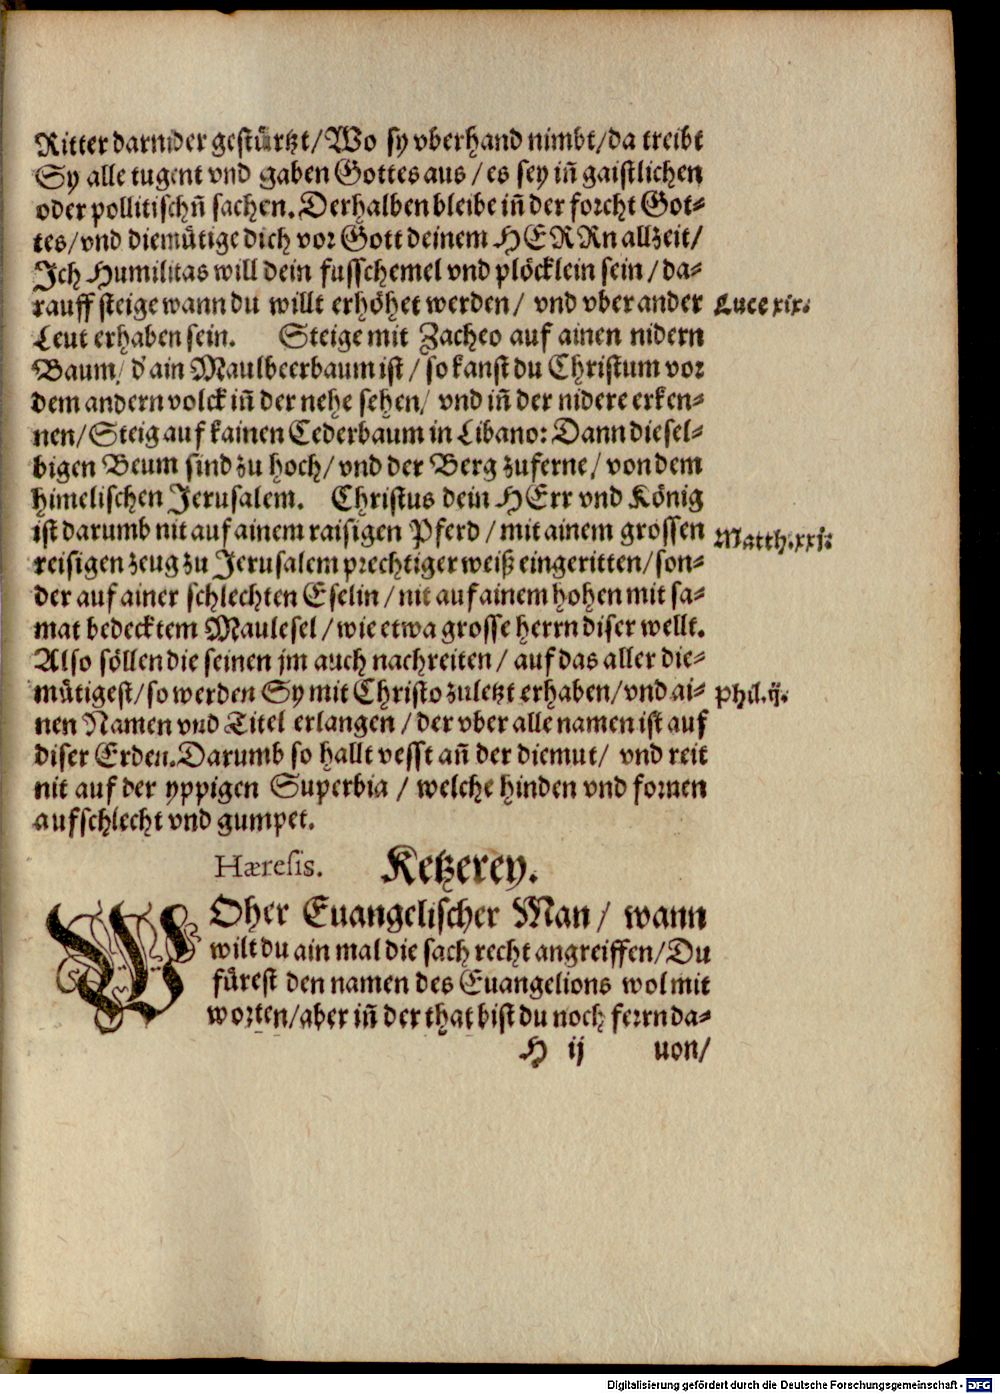 Ritter darnider gestürtzt/Wo sy vberhand nimbt/da treibt
Sy alle tugent vnd gaben Gottes aus/es sey iñ gaistlichen
oder pollitischñ sachen. Derhalben bleibe iñ der forcht Got⸗
tes/vnd diemütige dich vor Gott deinem HERRn allzeit/
Jch Humilitas will dein fusschemel vnd plöcklein sein/da⸗
rauff steige wann du willt erhöhet werden/ vnd vber ander
Luce xix.
Leut erhaben sein. Steige mit Zacheo auf ainen nidern
Baum/ d' ain Maulbeerbaum ist/so kanst du Christum vor
dem andern volck iñ der nehe sehen/ vnd iñ der nidere erken⸗
nen/Steig auf kainen Cederbaum in Libano: Dann diesel⸗
bigen Beum sind zu hoch/vnd der Berg zuferne/von dem
himelischen Jerusalem. Christus dein HErr vnd König
ist darumb nit auf ainem raisigen Pferd/mit ainem grossen
Matth.xxi.
reisigen zeug zu Jerusalem prechtiger weiß eingeritten/son⸗
der auf ainer schlechten Eselin/nit auf ainem hohen mit sa⸗
mat bedecktem Maulesel/wie etwa grosse herrn diser wellt.
Also söllen die seinen jm auch nachreiten/auf das aller die⸗
mütigest/so werden Sy mit Christo zuletzt erhaben/vnd ai⸗
Phil.ij.
nen Namen vnd Titel erlangen/der vber alle namen ist auf
diser Erden. Darumb so hallt vesst añ der diemut/ vnd reit
nit auf der yppigen Superbia/welche hinden vnd fornen
aufschlecht vnd gumpet.
Hæresis. Ketzerey.
WOher Euangelischer Man/ wann
wilt du ain mal die sach recht angreiffen/Du
fürest den namen des Euangelions wol mit
worten/aber iñ der that bist du noch ferrn da⸗
H ij uon/
Digitalisierung gefördert durch die Deutsche Forschungsgemeinschaft - DFG